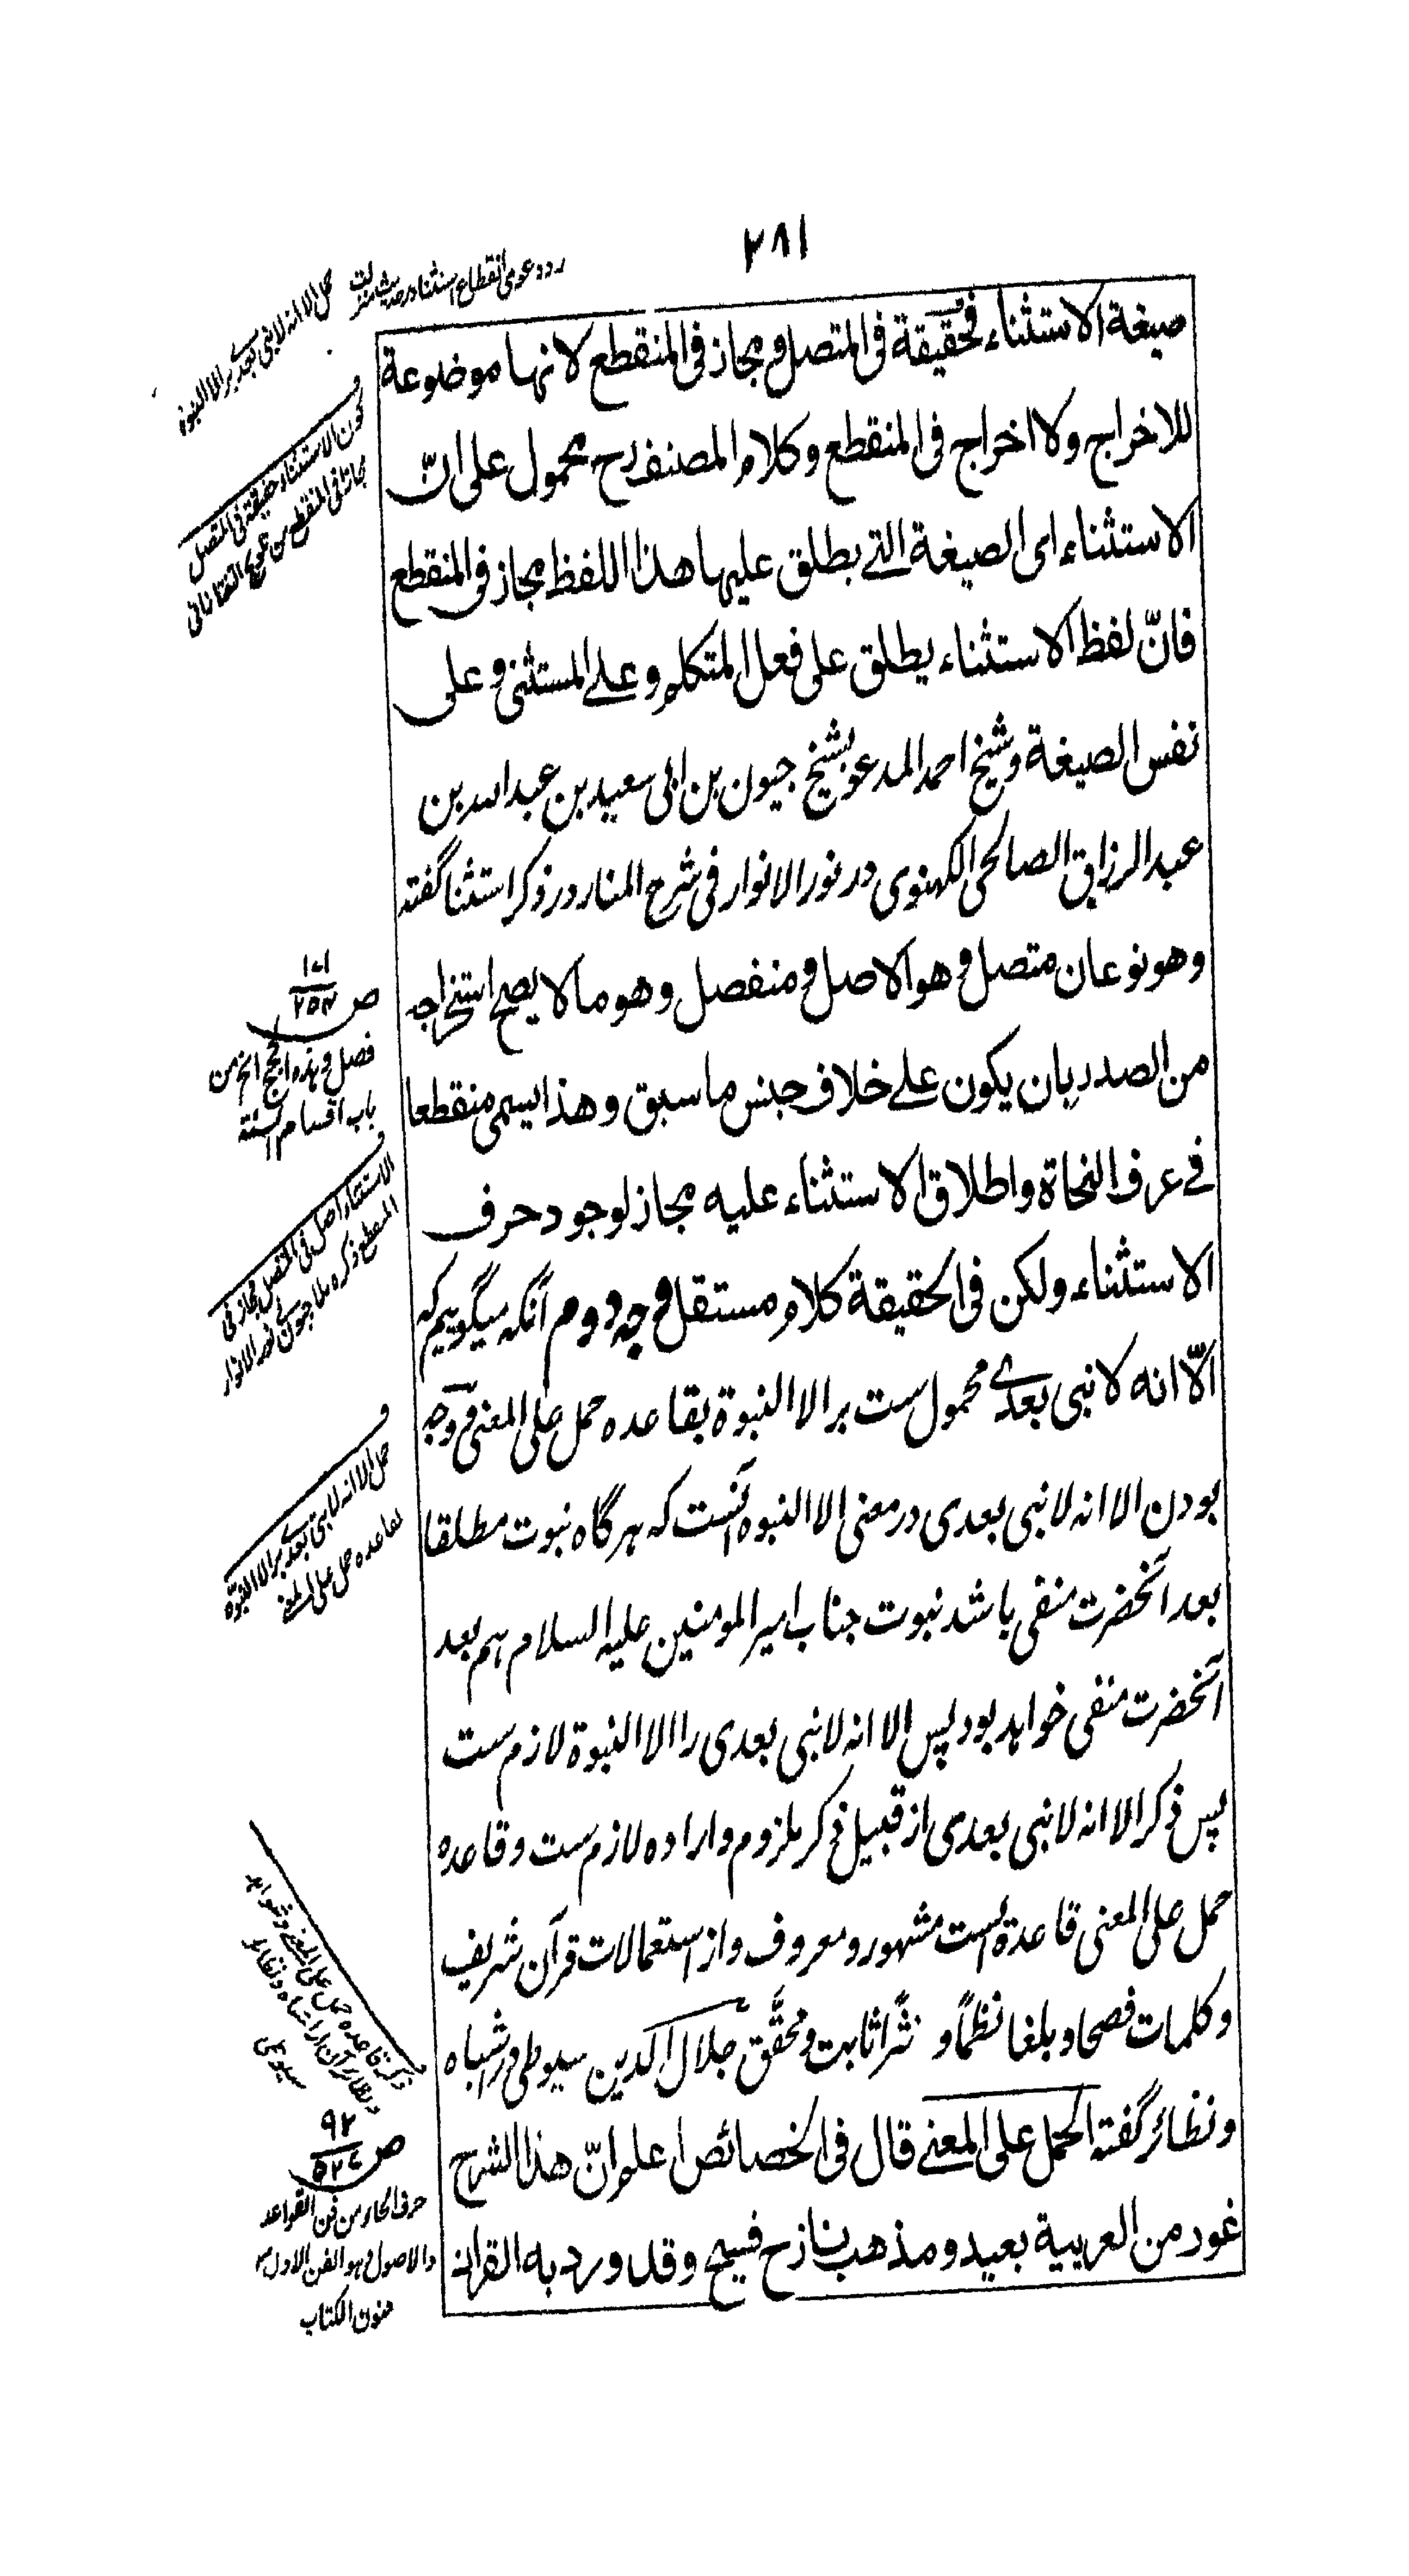 ٢٨١
رد دعوی انقطاع استثنا در حدیث منزلت
حمل الا انه لا نبی بعدی بر الا النبوة
صیغة الاستثناء فحقیقة فی المتصل و مجاز فی المنقطع لانها موضوعة
للاخراج ولا اخراج فی المنقطع و کلام المصنف رح محمول علی انّ
الاستثناء ای الصیغة التی یطلق علیها هذا اللفظ مجاز فی المنقطع
فانّ لفظ الاستثناء یطلق علی فعل المتکلم و علی المستثنی و علی
نفس الصیغة و شیخ احمد المدعو بشیخ جیون بن ابی سعید بن عبد الله بن
عبد الرزاق الصالحی الکهنوی در نور الانوار فی شرح المنار در ذکر استثنا گفته
وهو نوعان متصل و هو الاصل و منفصل و هو ما لا یصح استخراجه
من الصدر بان یکون علی خلاف جنس ما سبق و هذا یسمی منقطعا
فی عرف النحاة و اطلاق الاستثناء علیه مجاز لوجود حرف
الاستثناء ولکن فی الحقیقة کلام مستقل وجه دوم آنکه میگوییم که
الّا انه لا نبی بعدی محمول ست بر الا النبوة بقاعده حمل علی المعنی و وجه
بودن الا انه لا نبی بعدی در معنی الا النبوه آنست که هرگاه نبوت مطلقا
بعد آنحضرت منفی باشد نبوت جناب امیر المومنین علیه السلام هم بعد
آنحضرت منفی خواهد بود پس الا انه لا نبی بعدی را الا النبوة لازم ست
پس ذکر الا انه لا نبی بعدی از قبیل ذکر ملزوم و اراده لازم ست و قاعده
حمل علی المعنی قاعدة ایست مشهور و معروف و از استعمالات قرآن شریف
و کلمات فصحا و بلغا نظماً و نثراً ثابت و محقَّق جلال الدین سیوطی در اشباه
و نظائر گفته الحمل علی المعنی قال فی الخصائص اعلم انّ هذا الشرح
غور من العربیة بعید و مذهب نازح فسیح وقد ورد به القران
کون الاستثناء حقیقة فی المتصل
مجازا فی المنقطع من تلویح التفتازانی
١٠١
ص ٢٥٣
فصل و هذه الحجج الخ من
باب اقسام السنة
الاستثناء اصل فی المتصل مجاز فی
المنقطع ذکره ملا جیون فی نور الانوار
حمل الا انه لا نبی بعدی بر الا النبوة
بقاعده حمل علی المعنی
ذکر قاعده حمل علی المعنی و شواهد
و نظائر آن از اشباه و نظائر
سیوطی
٩٢
ص ٥٢٤
حرف الحاء من فن القواعد
والاصول و هو الفن الاول من
فنون الکتاب